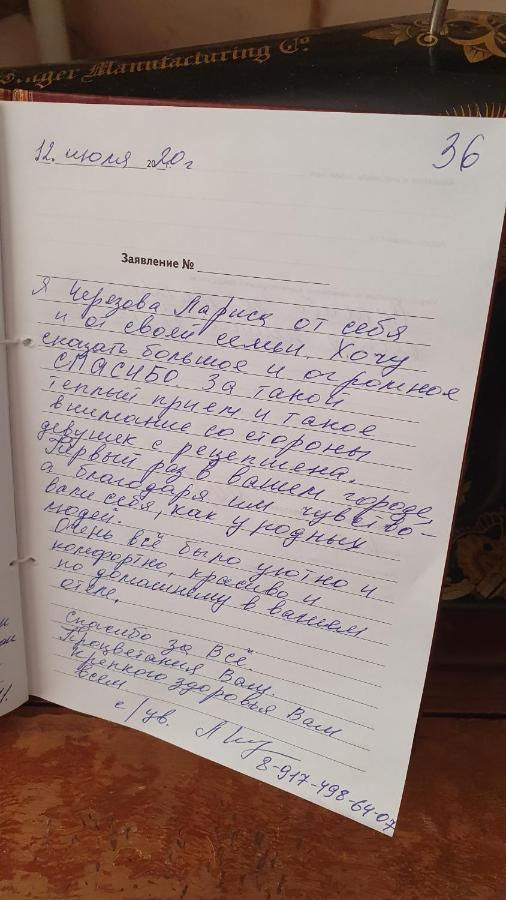 Singer Manufacturing Co.
36
12. июля 2020 г
Заявление №
Я Черезова Лариса от себя
и от своей семьи Хочу
сказать большое и огромное
СПАСИБО За такой
теплый прием и такое
внимание со стороны
девушек с рецепшена.
Первый раз в вашем городе,
а благодаря им чувство-
вали себя, как у родных
людей.
Очень всё было уютно и
комфортно, красиво и
по домашнему в вашем
отеле.
Спасибо за Всё
Процветания Вам
крепкого здоровья Вам
всем
с/ув.
8-917-498-64-07